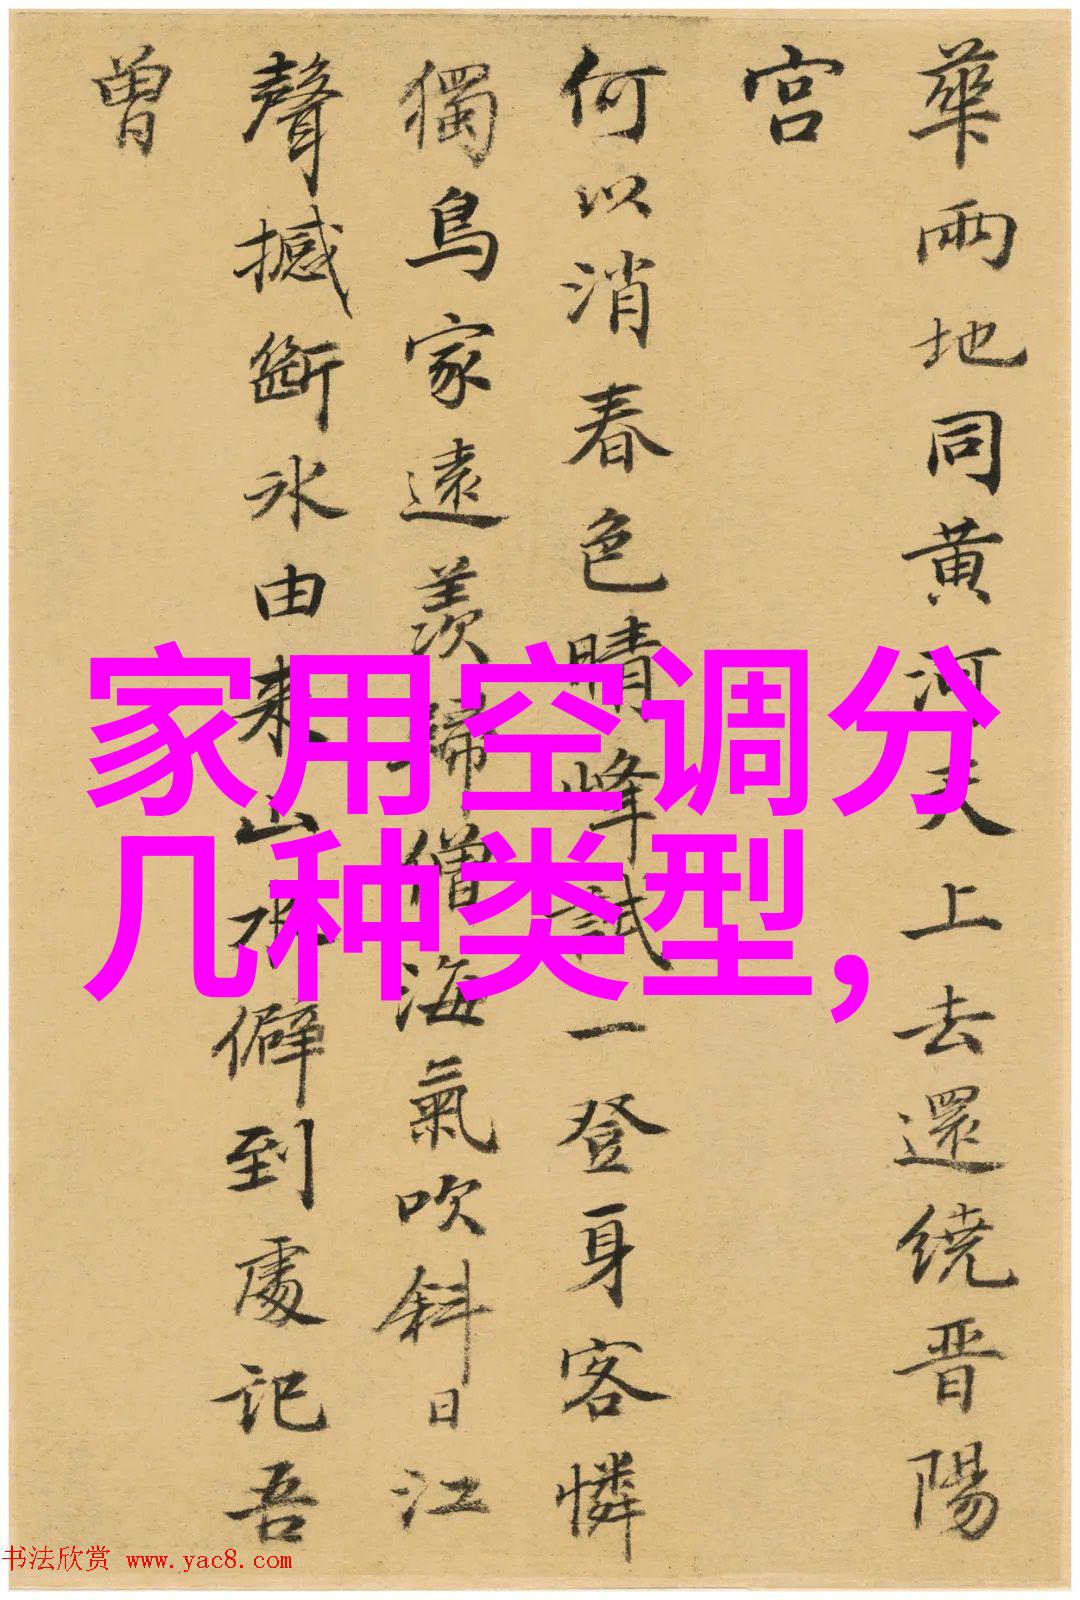 華兩地同黄河天上去還繞晋陽
宫
何以消春色晴峰試一登身客憐
獨鳥家遠羨歸僧海氣吹斜日江
聲撼斷冰由来山水僻到處記吾
曾
家用空调分
几种类型,
书法欣赏 www.yac8.com